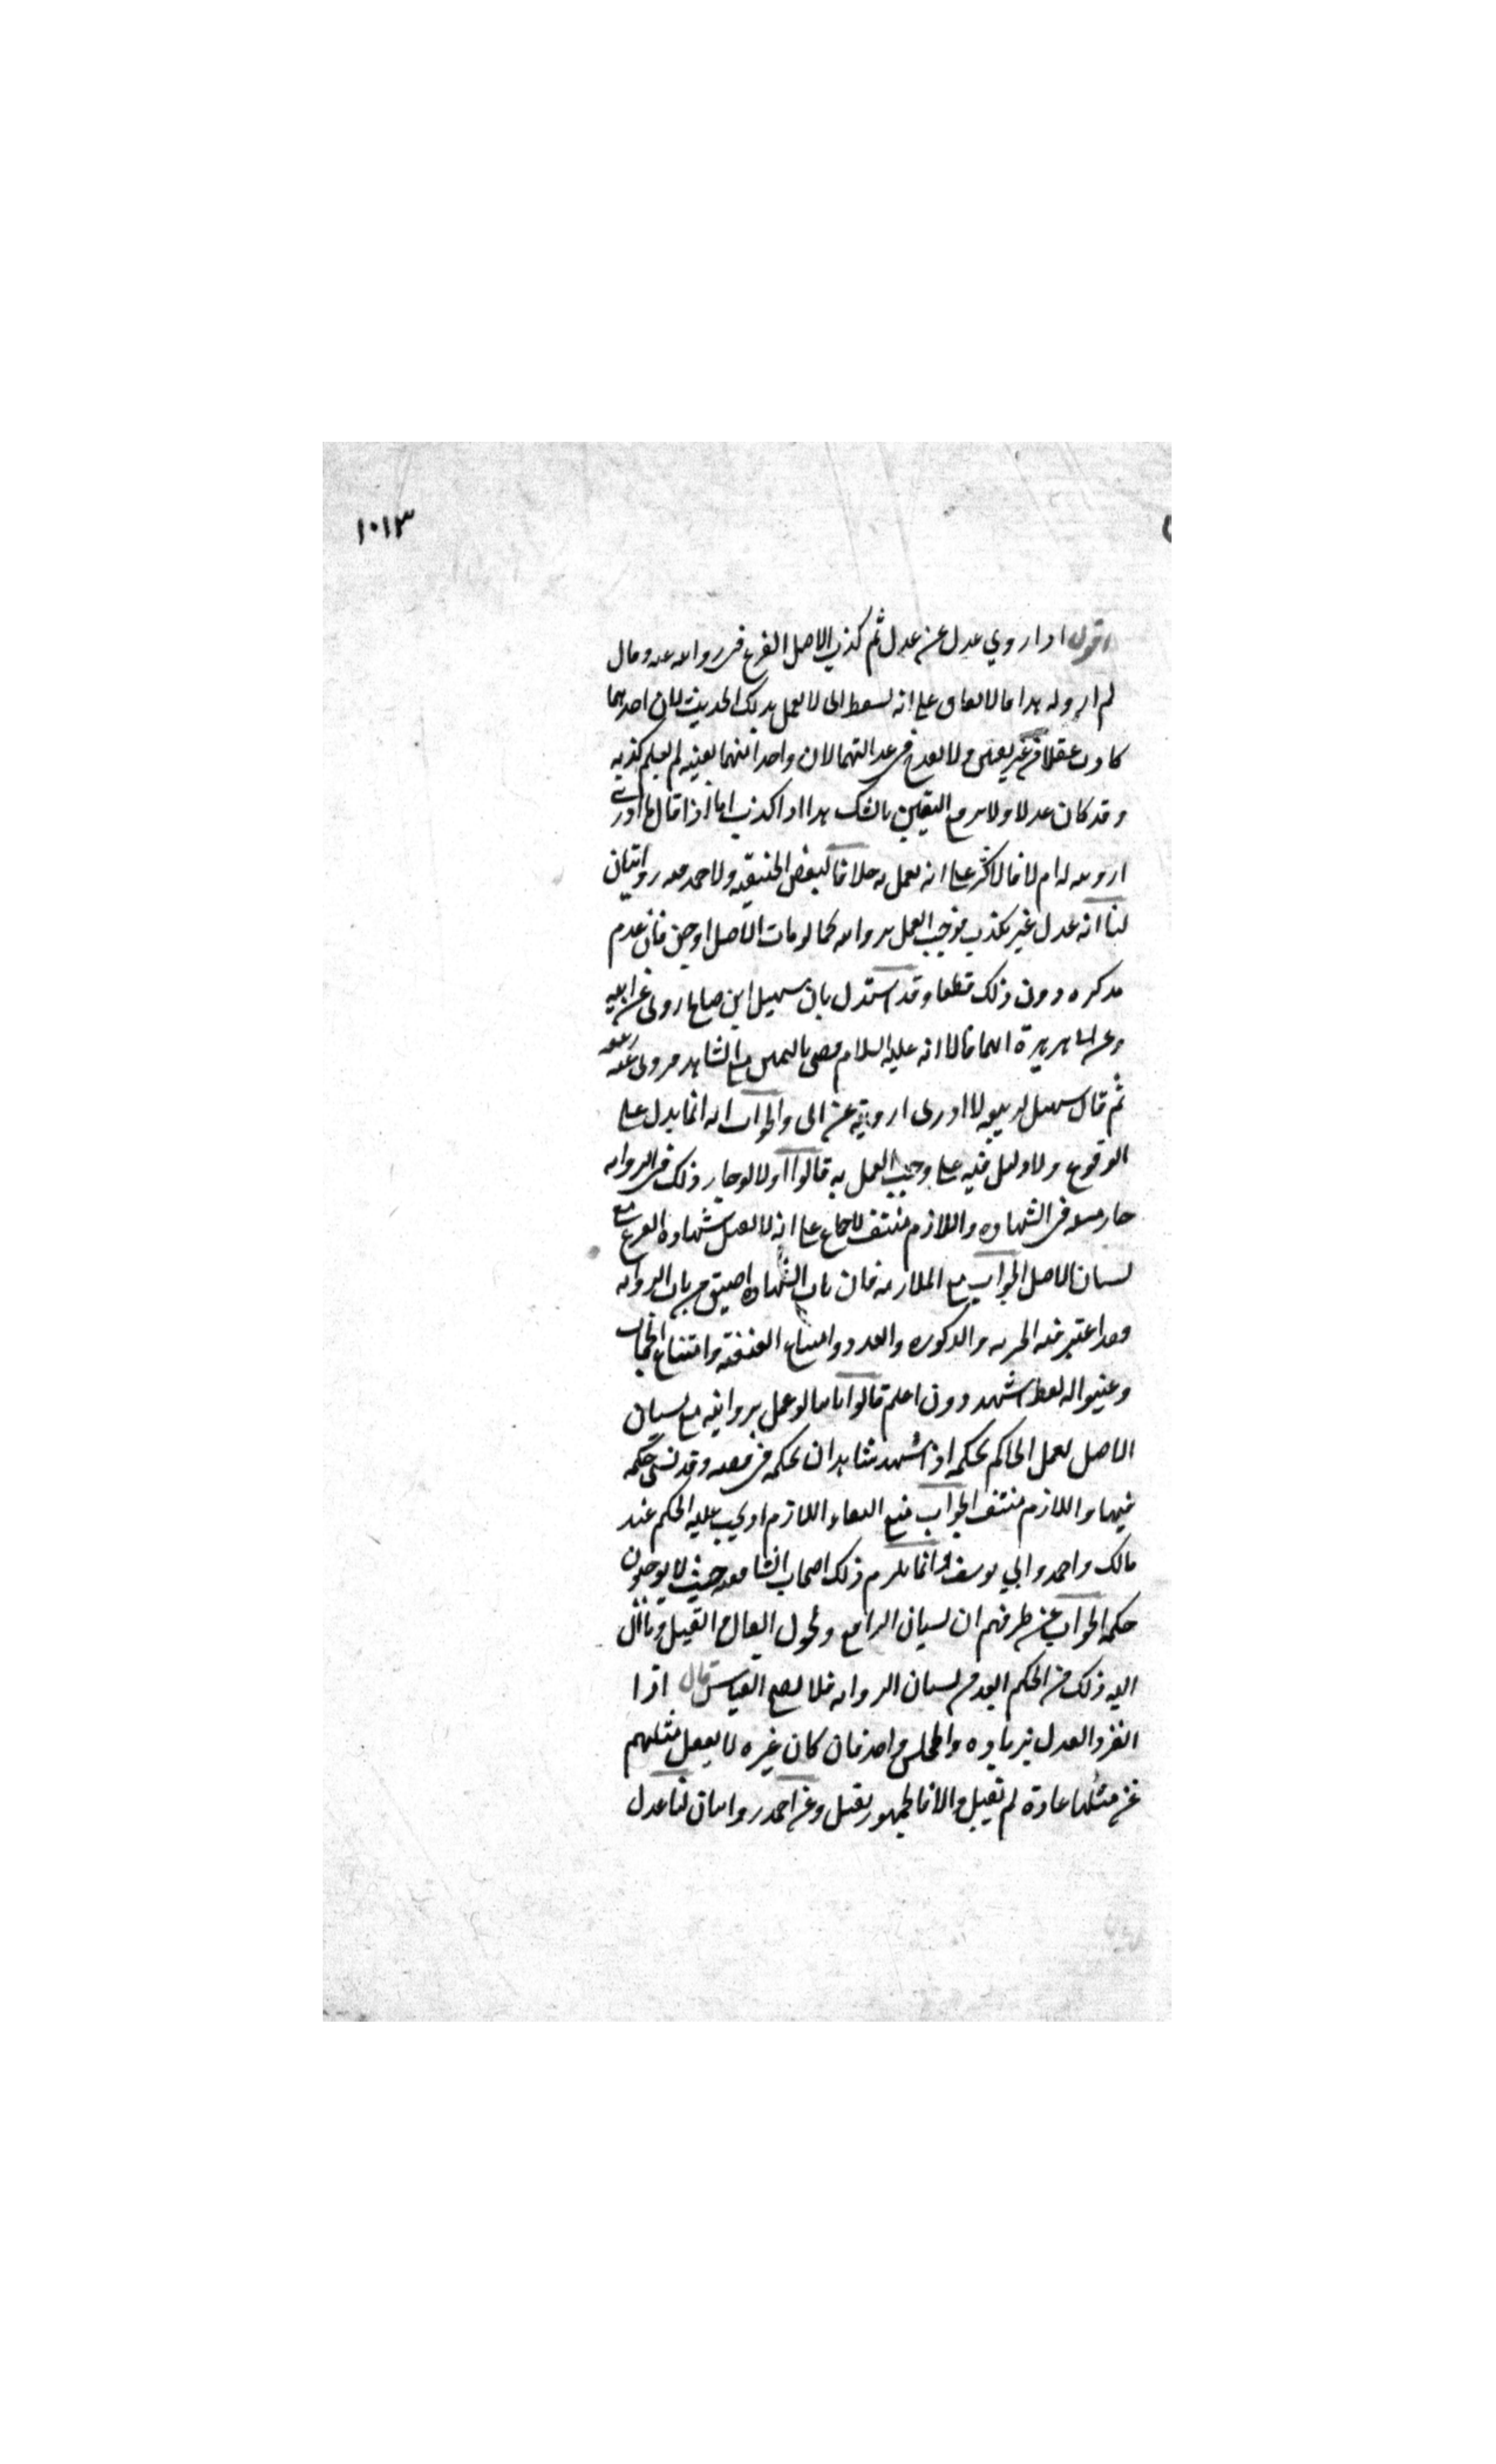 ١٠١٣
اقول اذا روي عدل عن عدل ثم كذب الاصل الفرع في روايته عنه وقال
لم اروه له هذا فالاتفاق على انه يسقط اي لا يعمل بذلك الحديث لان احدهما
كاذب قطعا من غير تعيين ولا يقدح في عدالتهما لان واحدا منهما بعينه لم يعلم كذبه
وقد كان عدلا ولا يرفع اليقين بالشك هذا اذا كذب اما اذا قال لا ادري
ارويته له ام لا فالاكثر على انه يعمل به خلافا لبعض الحنفيه ولاحمد فيه روايتان
لنا انه عدل غير مكذب فوجب العمل بروايته كما لو مات الاصل او جن فان عدم
تذكره دون ذلك قطعا وقد استدل بان سهيل ابن صالح روى عن ابيه
وعن ابي هريرة انهما قالا انه عليه السلام قضى باليمين مع الشاهد فروى عنه ربيعه
ثم قال سهيل لربيعه لا ادري ارويته عن ابي والجواب انه انما يدل على
الوقوع ولا دليل فيه على وجوب العمل به قالوا اولا لو جاز ذلك في الروايه
جاز مثله في الشهاده واللازم منتف للاجماع على انه لا تقبل شهاده الفرع مع
نسيان الاصل الجواب منع الملازمه فان باب الشهاده اضيق من باب الروايه
وقد اعتبر فيه الحريه والذكوره والعدد وامتناع العنعنه وامتناع الحجاب
وعينوا له لفظ اشهد دون اعلم قالوا ثانيا لو عمل بروايته مع نسيان
الاصل لعمل الحاكم بحكمه اذا شهد شاهدان بحكمه في قضيه وقد نسي حكمه
فيها واللازم منتف الجواب منع انتفاء اللازم اذ يجب عليه الحكم عند
مالك واحمد وابي يوسف وانما يلزم ذلك اصحاب الشافعي حيث لا يوجبون
حكمه الجواب عن طرفهم ان نسيان الترافع وطول القال والقيل وما آل
اليه ذلك من الحكم ابعد من نسيان الروايه فلا يصح القياس قال اذا
انفرد العدل بزياده والمجلس واحد فان كان غيره لا يغفل مثلهم
عن مثلها عادة لم تقبل والا فالجمهور تقبل وعن احمد روايتان لنا عدل